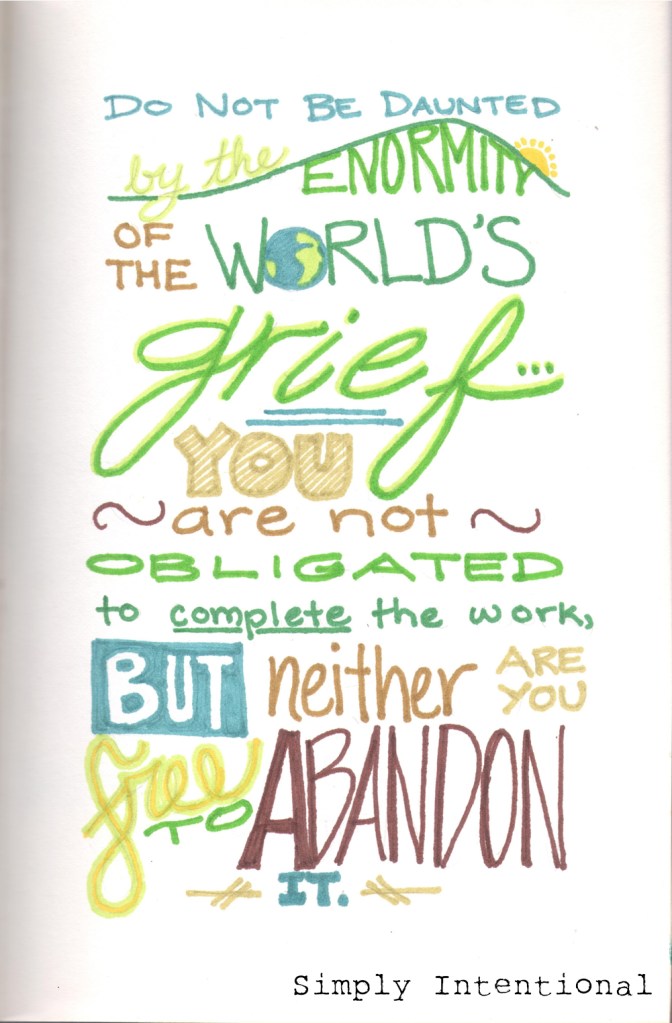 DO NOT BE DAUNTED
by the ENORMITY
OF THE WORLD'S
grief...
YOU
~are not~
OBLIGATED
to complete the work,
BUT neither ARE YOU
free TO ABANDON
IT.
Simply Intentional